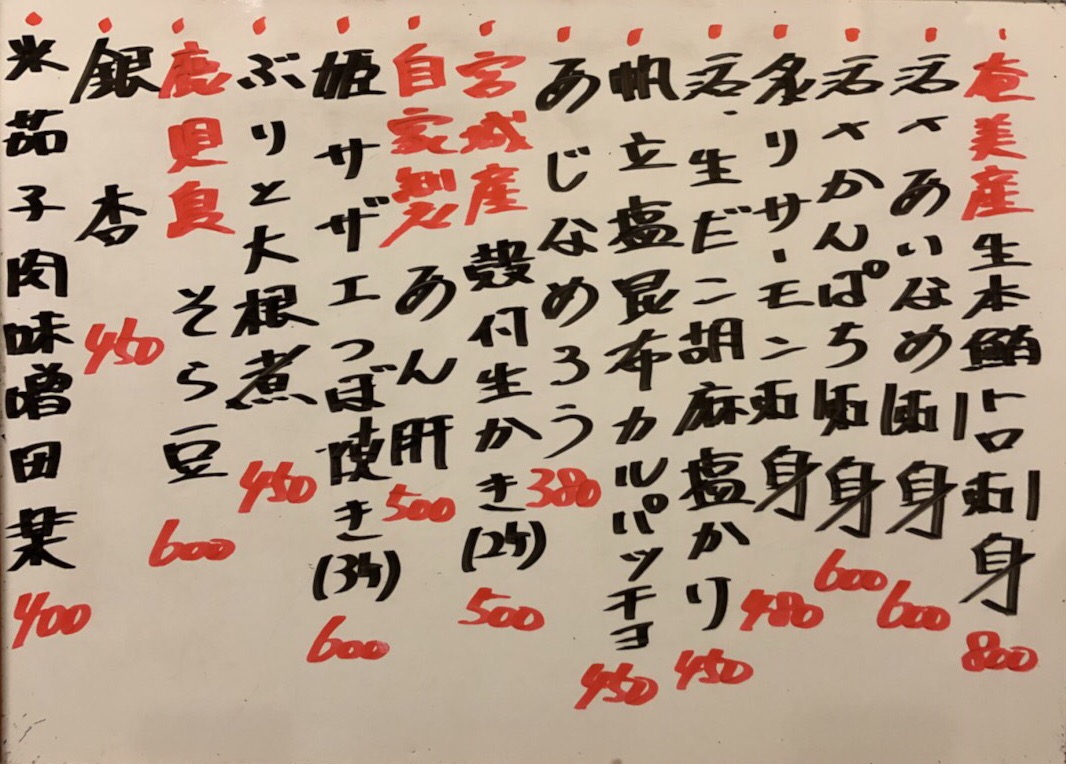 奄美産 生本鮪トロ刺身 800
活〆あいなめ刺身 600
活〆かんぱち刺身 600
炙りサーモン刺身 480
活、生だこ胡麻塩かり 450
帆立塩昆布カルパッチョ 450
あじなめろう 380
宮城産 殻付生かき(2ケ) 500
自家製 あん肝 500
姫サザエつぼ焼き(3ケ) 600
ぶりと大根煮 450
鹿児島 そら豆 600
銀杏 450
米茄子肉味噌田楽 400